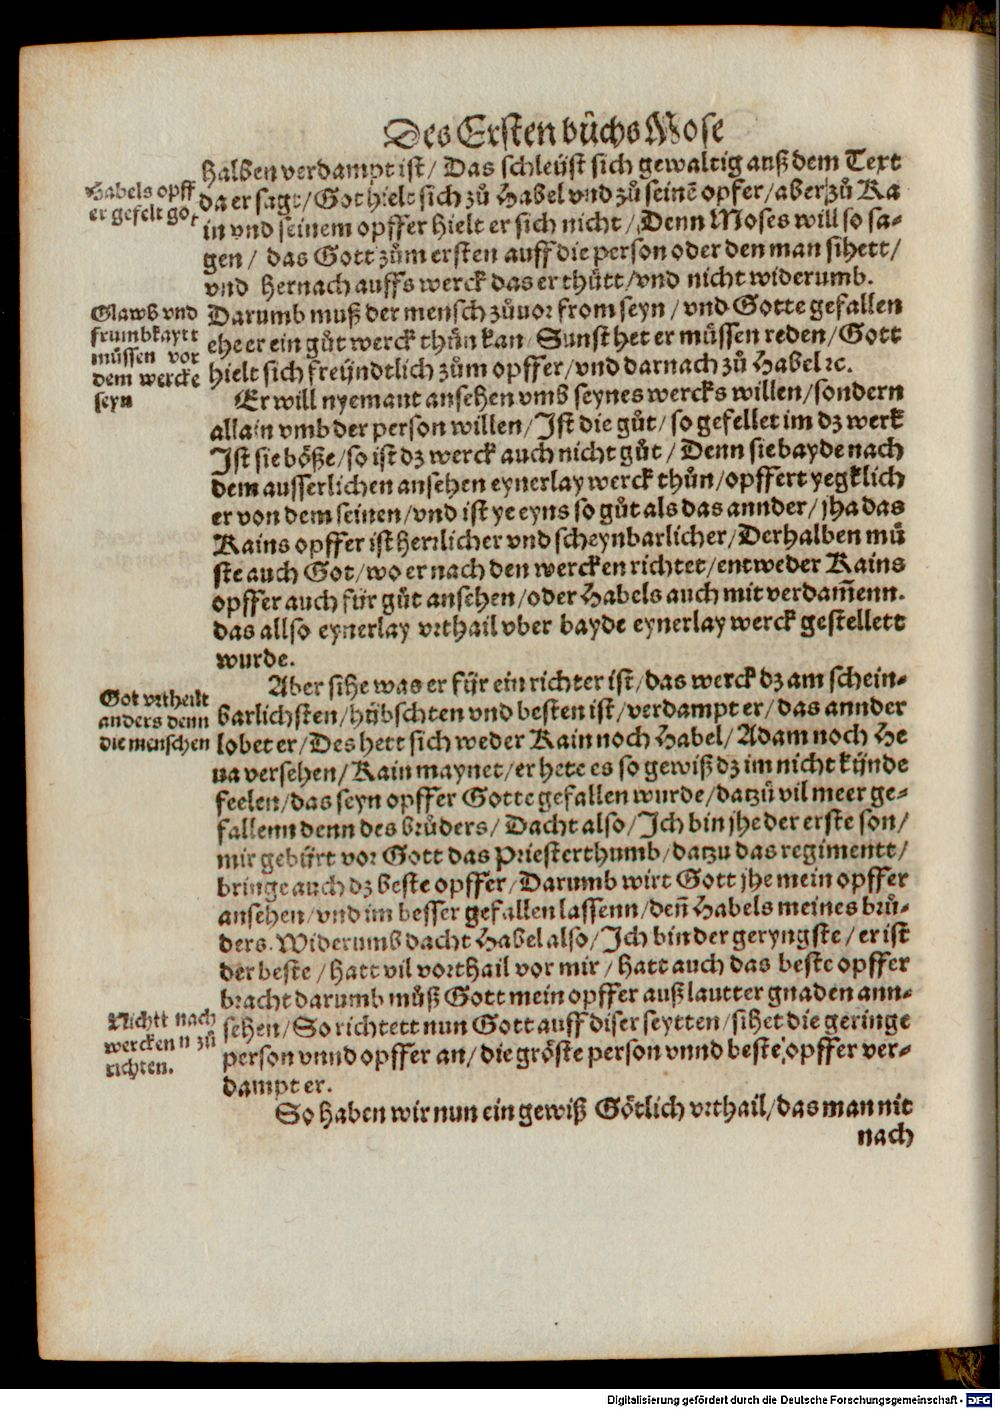 Des Ersten bůchs Mose
halben verdampt ist/ Das schleüst sich gewaltig auß dem Text
Habels opff
er gefelt got
da er sagt/ Got hielt sich zů Habel vnd zů seinẽ opfer/ aber zů Ka
in vnd seinem opffer hielt er sich nicht/ Denn Moses will so sa-
gen/ das Gott zům ersten auff die person oder den man sihett/
vnd hernach auffs werck das er thůtt/ vnd nicht widerumb.
Glawb vnd
frumbkaytt
müssen vor
dem wercke
seyn
Darumb muß der mensch zůuor from seyn/ vnd Gotte gefallen
ehe er ein gůt werck thůn kan/ Sunst het er müssen reden/ Gott
hielt sich freyndtlich zům opffer/ vnd darnach zů Habel ꝛc.
Er will nyemant ansehen vmb seynes wercks willen/ sondern
allain vmb der person willen/ Ist die gůt/ so gefellet im dz werk
Ist sie böße/ so ist dz werck auch nicht gůt/ Denn sie bayde nach
dem ausserlichen ansehen eynerlay werck thůn/ opffert yegklich
er von dem seinen/ vnd ist ye eyns so gůt als das annder/ jha das
Kains opffer ist herrlicher vnd scheynbarlicher/ Derhalben mů
ste auch Got/ wo er nach den wercken richtet/ entweder Kains
opffer auch für gůt ansehen/ oder Habels auch mit verdam̄enn.
das allso eynerlay vrthail vber bayde eynerlay werck gestellett
wurde.
Aber sihe was er für ein richter ist/ das werck dz am schein-
Got vrtheilt
anders denn
die menschen
barlichsten/ hübschten vnd besten ist/ verdampt er/ das annder
lobet er/ Des hett sich weder Kain noch Habel/ Adam noch He
ua versehen/ Kain maynet/ er hete es so gewiß dz im nicht künde
feelen/ das seyn opffer Gotte gefallen wurde/ datzů vil meer ge-
fallenn denn des brůders/ Dacht also/ Ich bin jhe der erste son/
mir gebürt vor Gott das Priesterthumb/ datzu das regimentt/
bringe auch dz beste opffer/ Darumb wirt Gott jhe mein opffer
ansehen/ vnd im besser gefallen lassenn/ den̄ Habels meines brů-
ders. Widerumb dacht Habel also/ Ich bin der geryngste/ er ist
der beste/ hatt vil vorthail vor mir/ hatt auch das beste opffer
bracht darumb můß Gott mein opffer auß lautter gnaden ann-
Nichtt nach
wercken zů
richten.
sehen/ So richtett nun Gott auff diser seytten/ sihet die geringe
person vnnd opffer an/ die gröste person vnnd beste opffer ver-
dampt er.
So haben wir nun ein gewiß Götlich vrthail/ das man nit
nach
Digitalisierung gefördert durch die Deutsche Forschungsgemeinschaft - DFG